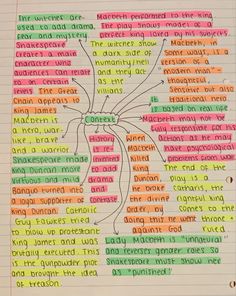 The witches are
used to add drama,
fear and mystery
Shakespeare
creates a main
character who
audiences can relate
to on certain
levels
The Great
Chain appeals to
King James
Macbeth is
a hero, war-
like, brave
and a warrior
Shakespeare made
King Duncan more
virtuous and mild
Banquo turned into
a loyal supporter of
King Duncan.
Catholic
Guy Fawkes tried
to blow up protestant
King James and was
brutally executed. This
is the gunpowder plot
and brought the idea
of treason.
Context
History
is re-
invented
to add
drama
and
contrast
Macbeth performed to the King
The play shows model of a
perfect King loved by his subjects
The witches show
a dark side of
humanity/hell
and they act
as the
villains
Macbeth, in
some ways, is a
version of a
modern man -
thoughtful,
sensitive but also
traditional hero
It is based on real life
Macbeth may not be
fully responsible for his
actions as he may
have psychological
problems from war
When
Macbeth
killed
King
Duncan,
he broke
the divine
order, by
doing this he went
against God
The end of the
play is a
catharis, the
rightful King
comes to the
throne +
ruled
Lady Macbeth is "unnatural"
and reverses gender roles so
Shakespeare must show her
as "punished"